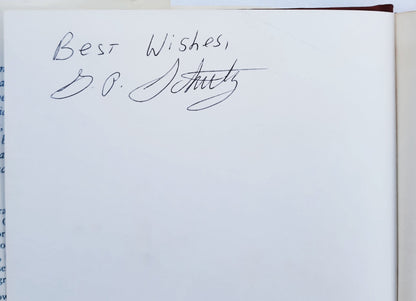 Best Wishes,
G. P. Schultz